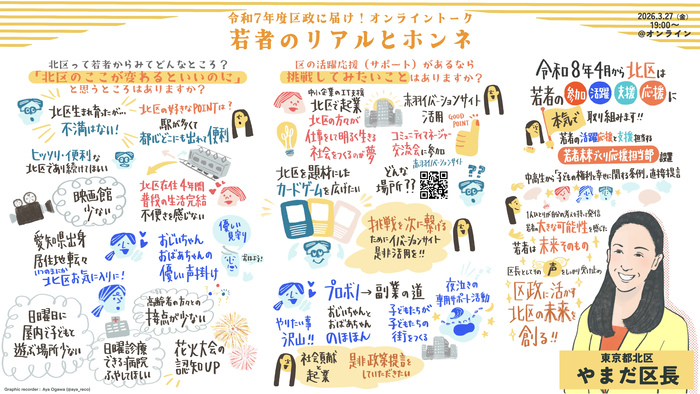 令和7年度区政に届け！オンライントーク
若者のリアルとホンネ
2026.3.27（金）
19:00〜
@オンライン
北区って若者からみてどんなところ？
「北区のここが変わるといいのに」
と思うところはありますか？
北区生まれ育ったが…
不満はない！
北区の好きなPOINTは？
駅が多くて
都心どこにも出れて便利
ヒッソリ・便利な
北区であり続けてほしい
映画館
少ない
北区在住4年間
普段の生活完結
不便さを感じない
愛知県出身
居住地転々
いつのまにか
北区お気に入りに！
おじいちゃん
おばあちゃんの
優しい声掛け
優しい
見守り
日曜日に
屋内で子どもと
遊ぶ場所少ない
高齢者の方との
接点が少ない
日曜診療
できる病院
ふやしてほしい
花火大会の
認知UP
区の活躍応援（サポート）があるなら
挑戦してみたいことはありますか？
中小企業のIT支援
北区で起業
北区の方が
仕事をして明るく生きる
社会をつくるのが夢
赤羽イノベーションサイト
活用
GOOD
POINT
コミュニティマネージャー
交流会に参加
赤羽イノベーションサイト
北区を題材にした
カードゲームを広げたい
どんな
場所??
挑戦を次に繋げる
ためにイノベーションサイト
是非活用を!!
プロボノ→副業の道
やりたい事
沢山!!
おじいちゃんと
おばあちゃんの
のほほん
夜泣きの
専用サポート活動
子どもたちが
子どもたちの
街をつくる
社会貢献
と
起業
是非政策提言を
していただきたい
令和8年4月から北区は
若者の参加活躍支援応援に
本気で
取り組みます!!
若者の活躍応援と支援担当する
若者未来づくり応援担当部
創設
大きな可能性を感じた
若者は未来そのもの
区政に活かす
北区の未来を
創る!!
東京都北区
やまだ区長
Graphic recorder : Aya Ogawa (@aya_reco)